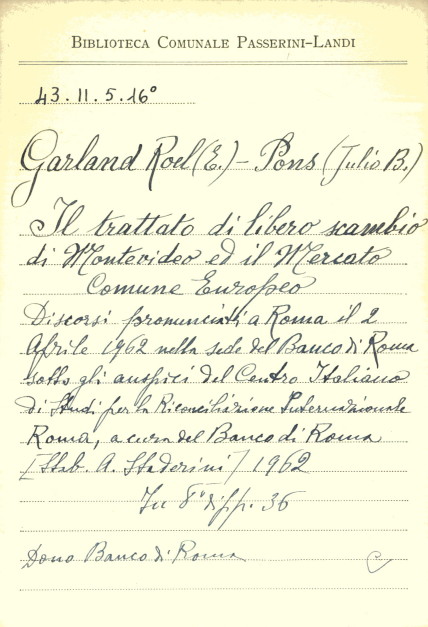 BIBLIOTECA COMUNALE PASSERINI-LANDI
43.11.5.16°
Garland Roel (E.) - Pons (Julio B.)
Il trattato di libero scambio
di Montevideo ed il Mercato
Comune Europeo
Discorsi pronunciati a Roma il 2
Aprile 1962 nella sede del Banco di Roma
sotto gli auspici del Centro Italiano
di Studi per la Riconciliazione Internazionale
Roma, a cura del Banco di Roma
[Stab. A. Staderini] 1962
In 8° di pp. 36
Dono Banco di Roma
C